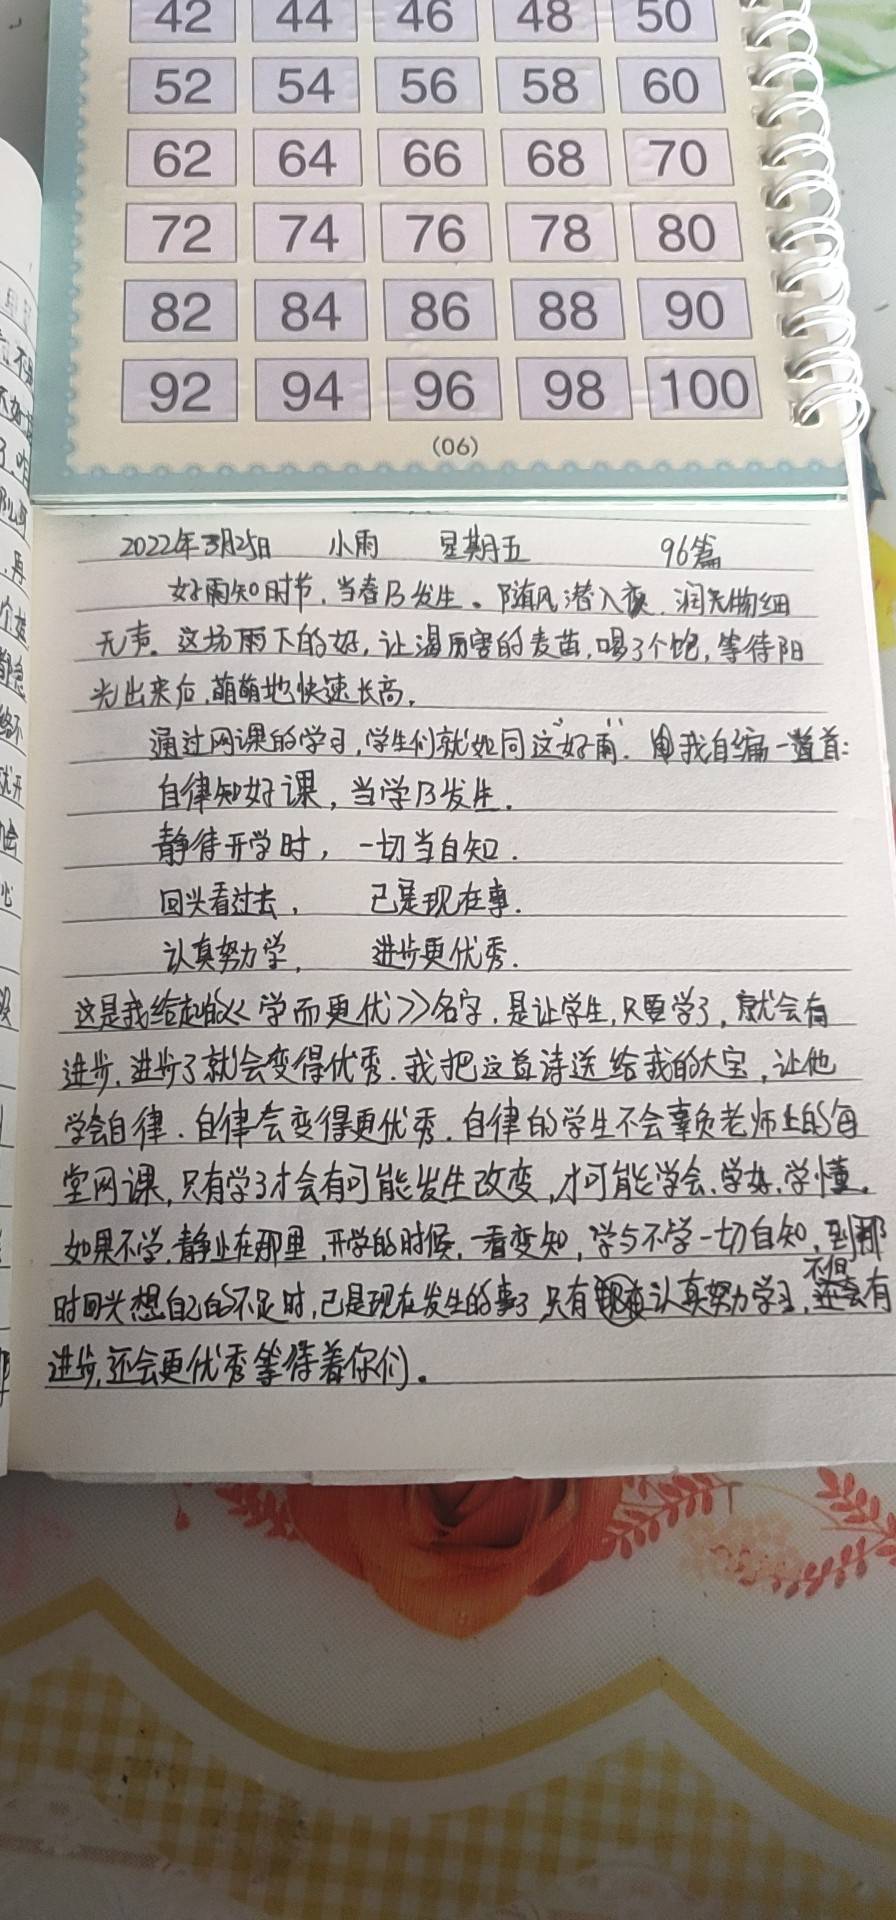 42 44 46 48 50
52 54 56 58 60
62 64 66 68 70
72 74 76 78 80
82 84 86 88 90
92 94 96 98 100
(06)
2022年3月25日 小雨 星期五 96篇
好雨知时节,当春乃发生。随风潜入夜,润无物细
无声。这场雨下的好,让渴厉害的麦苗,喝了个饱,等待阳
光出来后,萌萌地快速长高,
通过网课的学习,学生们就如同这"好雨".我自编一首:
自律知好课,当学乃发生.
静待开学时,一切当自知.
回头看过去,已是现在事.
认真努力学,进步更优秀.
这是我给起的《学而更优》名字,是让学生,只要学了,就会有
进步,进步了就会变得优秀.我把这首诗送给我的大宝,让他
学会自律.自律会变得更优秀.自律的学生不会辜负老师上的每
堂网课,只有学了才会有可能发生改变,才可能学会.学好.学懂.
如果不学,静止在那里,开学的时候,一看变知,学与不学一切自知,到那
时回头想自己的不足时,已是现在发生的事了只有认真努力学习,不但会有
进步,还会更优秀等待着你们。